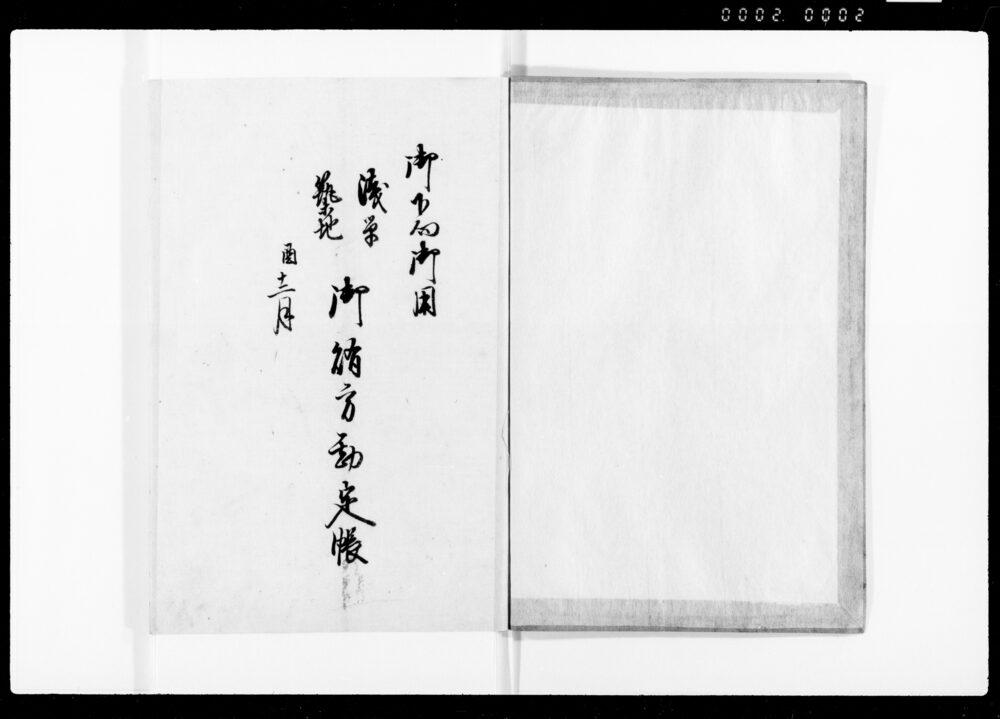 0002. 0002
御下向御用
浅草
築地
御賄方勘定帳
酉十二月